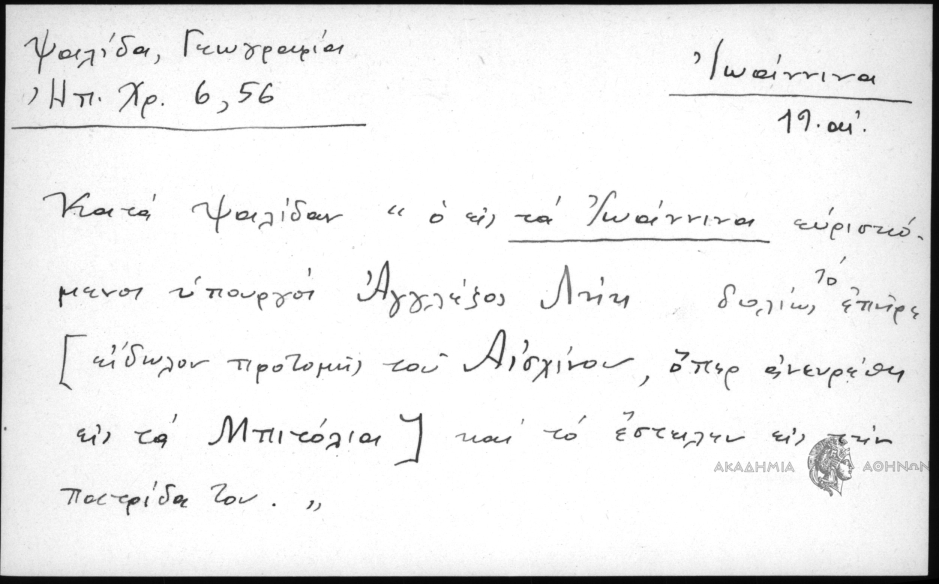 Ψαλίδα, Γεωγραφία
Ἠπ. Χρ. 6, 56
Ἰωάννινα
19. αἰ.
Κατά Ψαλίδαν “ ὁ εἰς τά Ἰωάννινα εὑρισκό-
μενοι ὑπουργοί Ἀγγλέζος Λήκ δολίως τό ἐπῆρε
[εἴδωλον προτομῆς τοῦ Αἰσχίνου, ὅπερ ἀνευρέθη
εἰς τά Μπιτόλια] καί τό ἔστειλεν εἰς τήν
πατρίδα του. „
ΑΚΑΔΗΜΙΑ ΑΘΗΝΩΝ